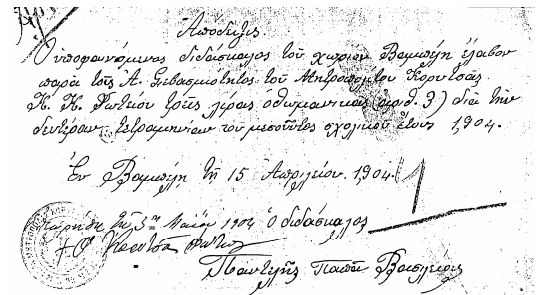 Ἀπόδειξις
Ὁ ὑποφαινόμενος διδάσκαλος τοῦ χωρίου Βαμπέλη ἔλαβον
παρὰ τῆς Α. Σεβασμιότητος τοῦ Μητροπολίτου Κορυτσᾶς
Κ. Κ. Φωτίου τρεῖς λίρας ὀθωμανικάς (ἀριθ. 3) διὰ τὴν
δευτέραν τετραμηνίαν τοῦ μεσοῦντος σχολικοῦ ἔτους 1904.
Ἐν Βαμπέλῃ τῇ 15 Ἀπριλίου. 1904.
1
τῇ 5ῃ Μαΐου 1904 ὁ διδάσκαλος
† Ὁ Κορυτσᾶς Φώτιος
Παντελῆς Παπᾶ Βασιλείου